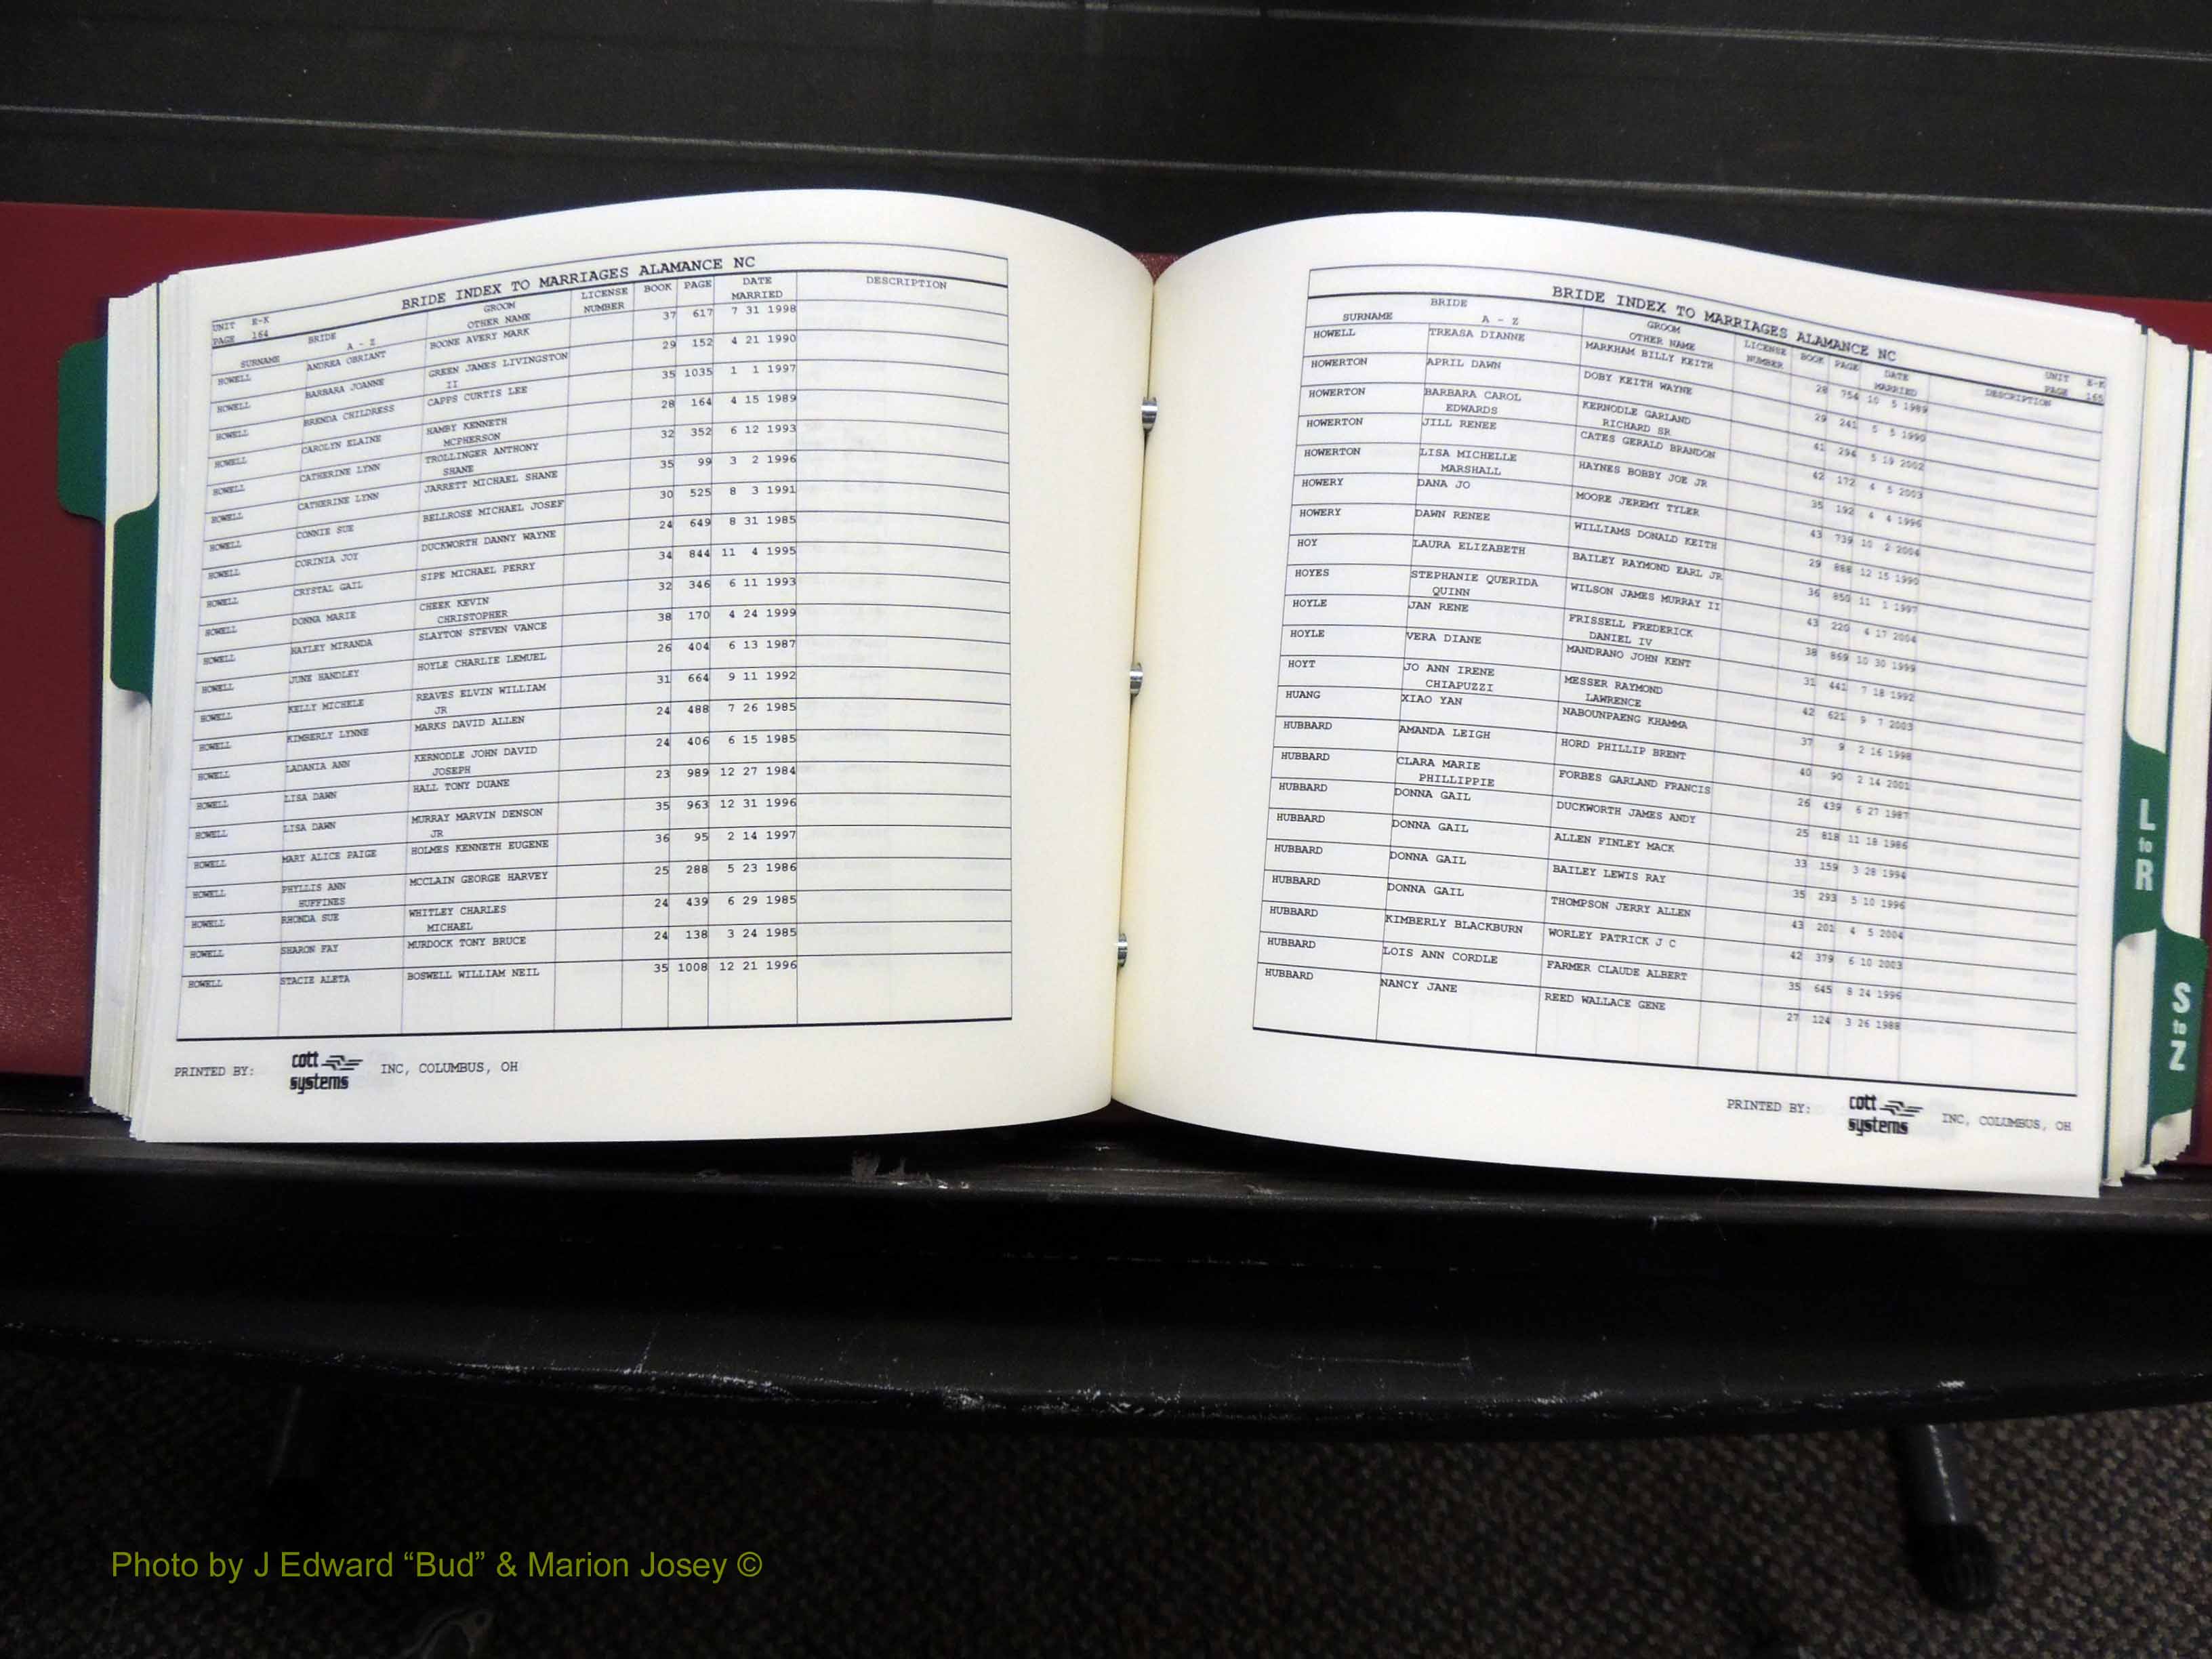 BRIDE INDEX TO MARRIAGES ALAMANCE NC
UNIT E-K
PAGE 164
SURNAME BRIDE A - Z GROOM OTHER NAME LICENSE NUMBER BOOK PAGE DATE MARRIED DESCRIPTION
HOWELL ANDREA OBRIANT BOONE AVERY MARK 37 617 7 31 1998
HOWELL BARBARA JOANNE GREEN JAMES LIVINGSTON II 29 152 4 21 1990
HOWELL BRENDA CHILDRESS CAPPS CURTIS LEE 35 1035 1 1 1997
HOWELL CAROLYN ELAINE HAMBY KENNETH MCPHERSON 28 164 4 15 1989
HOWELL CATHERINE LYNN TROLLINGER ANTHONY SHANE 32 352 6 12 1993
HOWELL CATHERINE LYNN JARRETT MICHAEL SHANE 35 99 3 2 1996
HOWELL CONNIE SUE BELLROSE MICHAEL JOSEF 30 525 8 3 1991
HOWELL CORINIA JOY DUCKWORTH DANNY WAYNE 24 649 8 31 1985
HOWELL CRYSTAL GAIL SIPE MICHAEL PERRY 34 844 11 4 1995
HOWELL DONNA MARIE CHEEK KEVIN CHRISTOPHER 32 346 6 11 1993
HOWELL HAYLEY MIRANDA SLAYTON STEVEN VANCE 38 170 4 24 1999
HOWELL JUNE HANDLEY HOYLE CHARLIE LEMUEL 26 404 6 13 1987
HOWELL KELLY MICHELE REAVES ELVIN WILLIAM JR 31 664 9 11 1992
HOWELL KIMBERLY LYNNE MARKS DAVID ALLEN 24 488 7 26 1985
HOWELL LADANIA ANN KERNODLE JOHN DAVID JOSEPH 24 406 6 15 1985
HOWELL LISA DAWN HALL TONY DUANE 23 989 12 27 1984
HOWELL LISA DAWN MURRAY MARVIN DENSON JR 35 963 12 31 1996
HOWELL MARY ALICE PAIGE HOLMES KENNETH EUGENE 36 95 2 14 1997
HOWELL PHYLLIS ANN HUFFINES MCCLAIN GEORGE HARVEY 25 288 5 23 1986
HOWELL RHONDA SUE WHITLEY CHARLES MICHAEL 24 439 6 29 1985
HOWELL SHARON FAY MURDOCK TONY BRUCE 24 138 3 24 1985
HOWELL STACIE ALETA BOSWELL WILLIAM NEIL 35 1008 12 21 1996
PRINTED BY: cott systems INC, COLUMBUS, OH
BRIDE INDEX TO MARRIAGES ALAMANCE NC
UNIT E-K
PAGE 165
SURNAME BRIDE A - Z GROOM OTHER NAME LICENSE NUMBER BOOK PAGE DATE MARRIED DESCRIPTION
HOWELL TREASA DIANNE MARKHAM BILLY KEITH 28 754 10 5 1989
HOWERTON APRIL DAWN DOBY KEITH WAYNE 29 241 5 5 1990
HOWERTON BARBARA CAROL EDWARDS KERNODLE GARLAND RICHARD SR 41 294 5 19 2002
HOWERTON JILL RENEE CATES GERALD BRANDON 42 172 4 5 2003
HOWERTON LISA MICHELLE MARSHALL HAYNES BOBBY JOE JR 35 192 4 4 1996
HOWERY DANA JO MOORE JEREMY TYLER 43 739 10 2 2004
HOWERY DAWN RENEE WILLIAMS DONALD KEITH 29 888 12 15 1990
HOY LAURA ELIZABETH BAILEY RAYMOND EARL JR 36 850 11 1 1997
HOYES STEPHANIE QUERIDA QUINN WILSON JAMES MURRAY II 43 220 4 17 2004
HOYLE JAN RENE FRISSELL FREDERICK DANIEL IV 38 869 10 30 1999
HOYLE VERA DIANE MANDRANO JOHN KENT 31 441 7 18 1992
HOYT JO ANN IRENE CHIAPUZZI MESSER RAYMOND LAWRENCE 42 621 9 7 2003
HUANG XIAO YAN NABOUNPAENG KHAMMA 37 9 2 16 1998
HUBBARD AMANDA LEIGH HORD PHILLIP BRENT 40 90 2 14 2001
HUBBARD CLARA MARIE PHILLIPPIE FORBES GARLAND FRANCIS 26 439 6 27 1987
HUBBARD DONNA GAIL DUCKWORTH JAMES ANDY 25 818 11 18 1986
HUBBARD DONNA GAIL ALLEN FINLEY MACK 33 159 3 28 1994
HUBBARD DONNA GAIL BAILEY LEWIS RAY 35 293 5 10 1996
HUBBARD DONNA GAIL THOMPSON JERRY ALLEN 43 201 4 5 2004
HUBBARD KIMBERLY BLACKBURN WORLEY PATRICK J C 42 379 6 10 2003
HUBBARD LOIS ANN CORDLE FARMER CLAUDE ALBERT 35 645 8 24 1996
HUBBARD NANCY JANE REED WALLACE GENE 27 124 3 26 1988
PRINTED BY: cott systems INC, COLUMBUS, OH
L to R
S to Z
Photo by J Edward “Bud” & Marion Josey ©